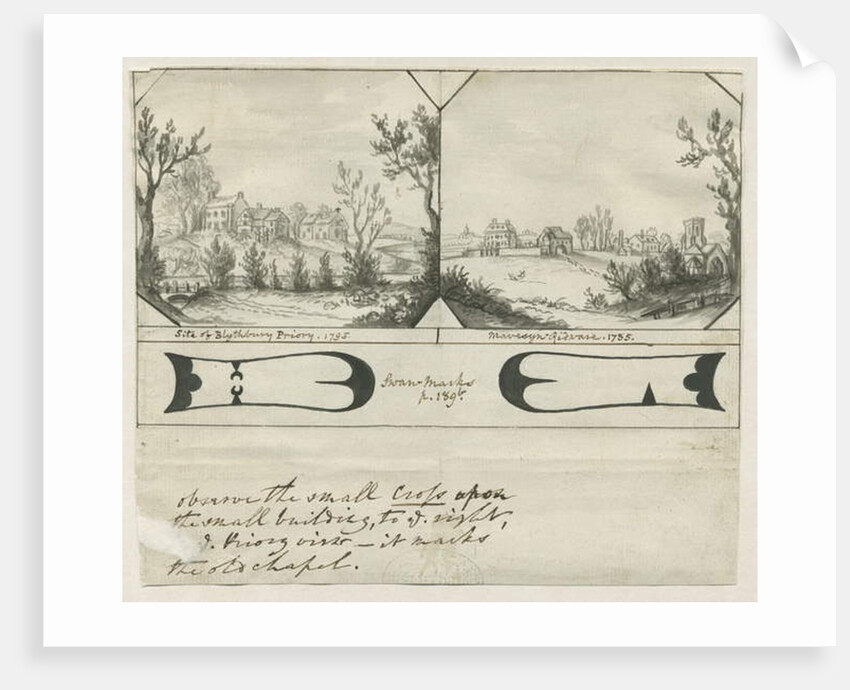 Site of Blythbury Priory. 1795.
Mavesyn Ridware. 1785.
Swan Marks
p. 189.
observe the small Cross upon
the small building, to ye. right,
ye. Priory view — it marks
the old chapel.